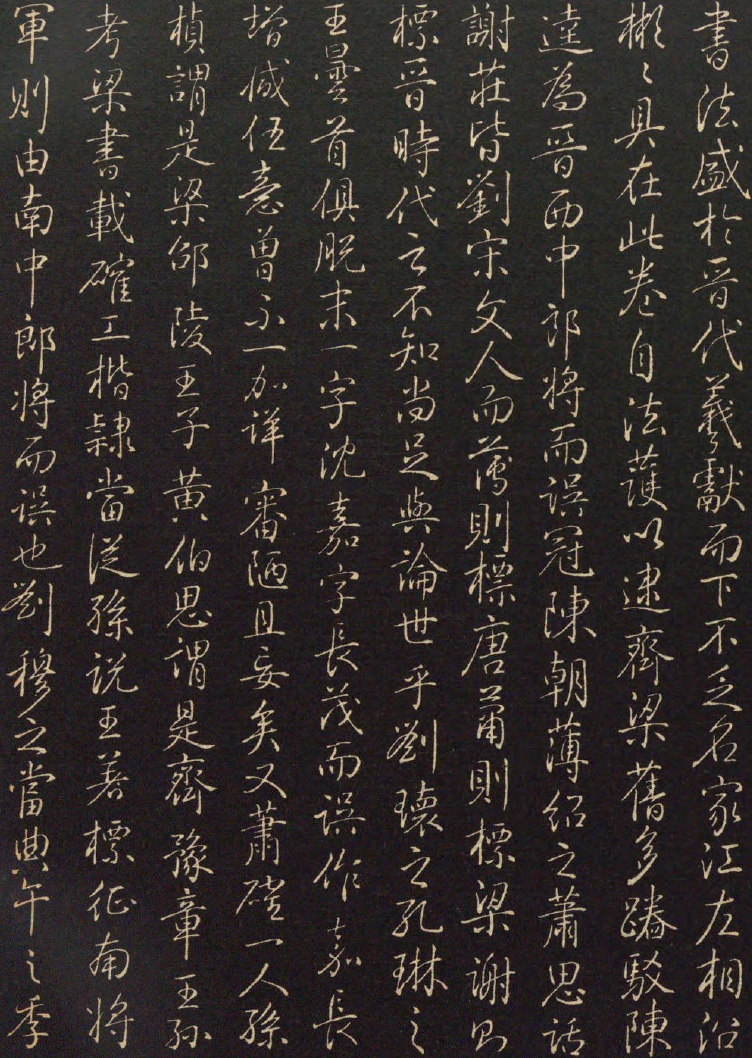 書法盛於晉代羲獻而下不乏名家江左相沿
彬彬具在此卷自法護以逮齊梁舊多踳駁陳
逵為晉西中郎將而誤冠陳朝薄紹之蕭思話
謝莊皆劉宋文人而薄則標唐蕭則標梁謝則
標晉時代之不知尚足與論世乎劉瓌之孔琳之
王曇首俱脫末一字沈嘉字長茂而誤作嘉長
增減任意曾不一加詳審陋且妄矣又蕭確一人孫
楨謂是梁邵陵王子黃伯思謂是齊豫章王孫
考梁書載確工楷隸當從孫說王著標征南將
軍則由南中郎將而誤也劉穆之當典午之季